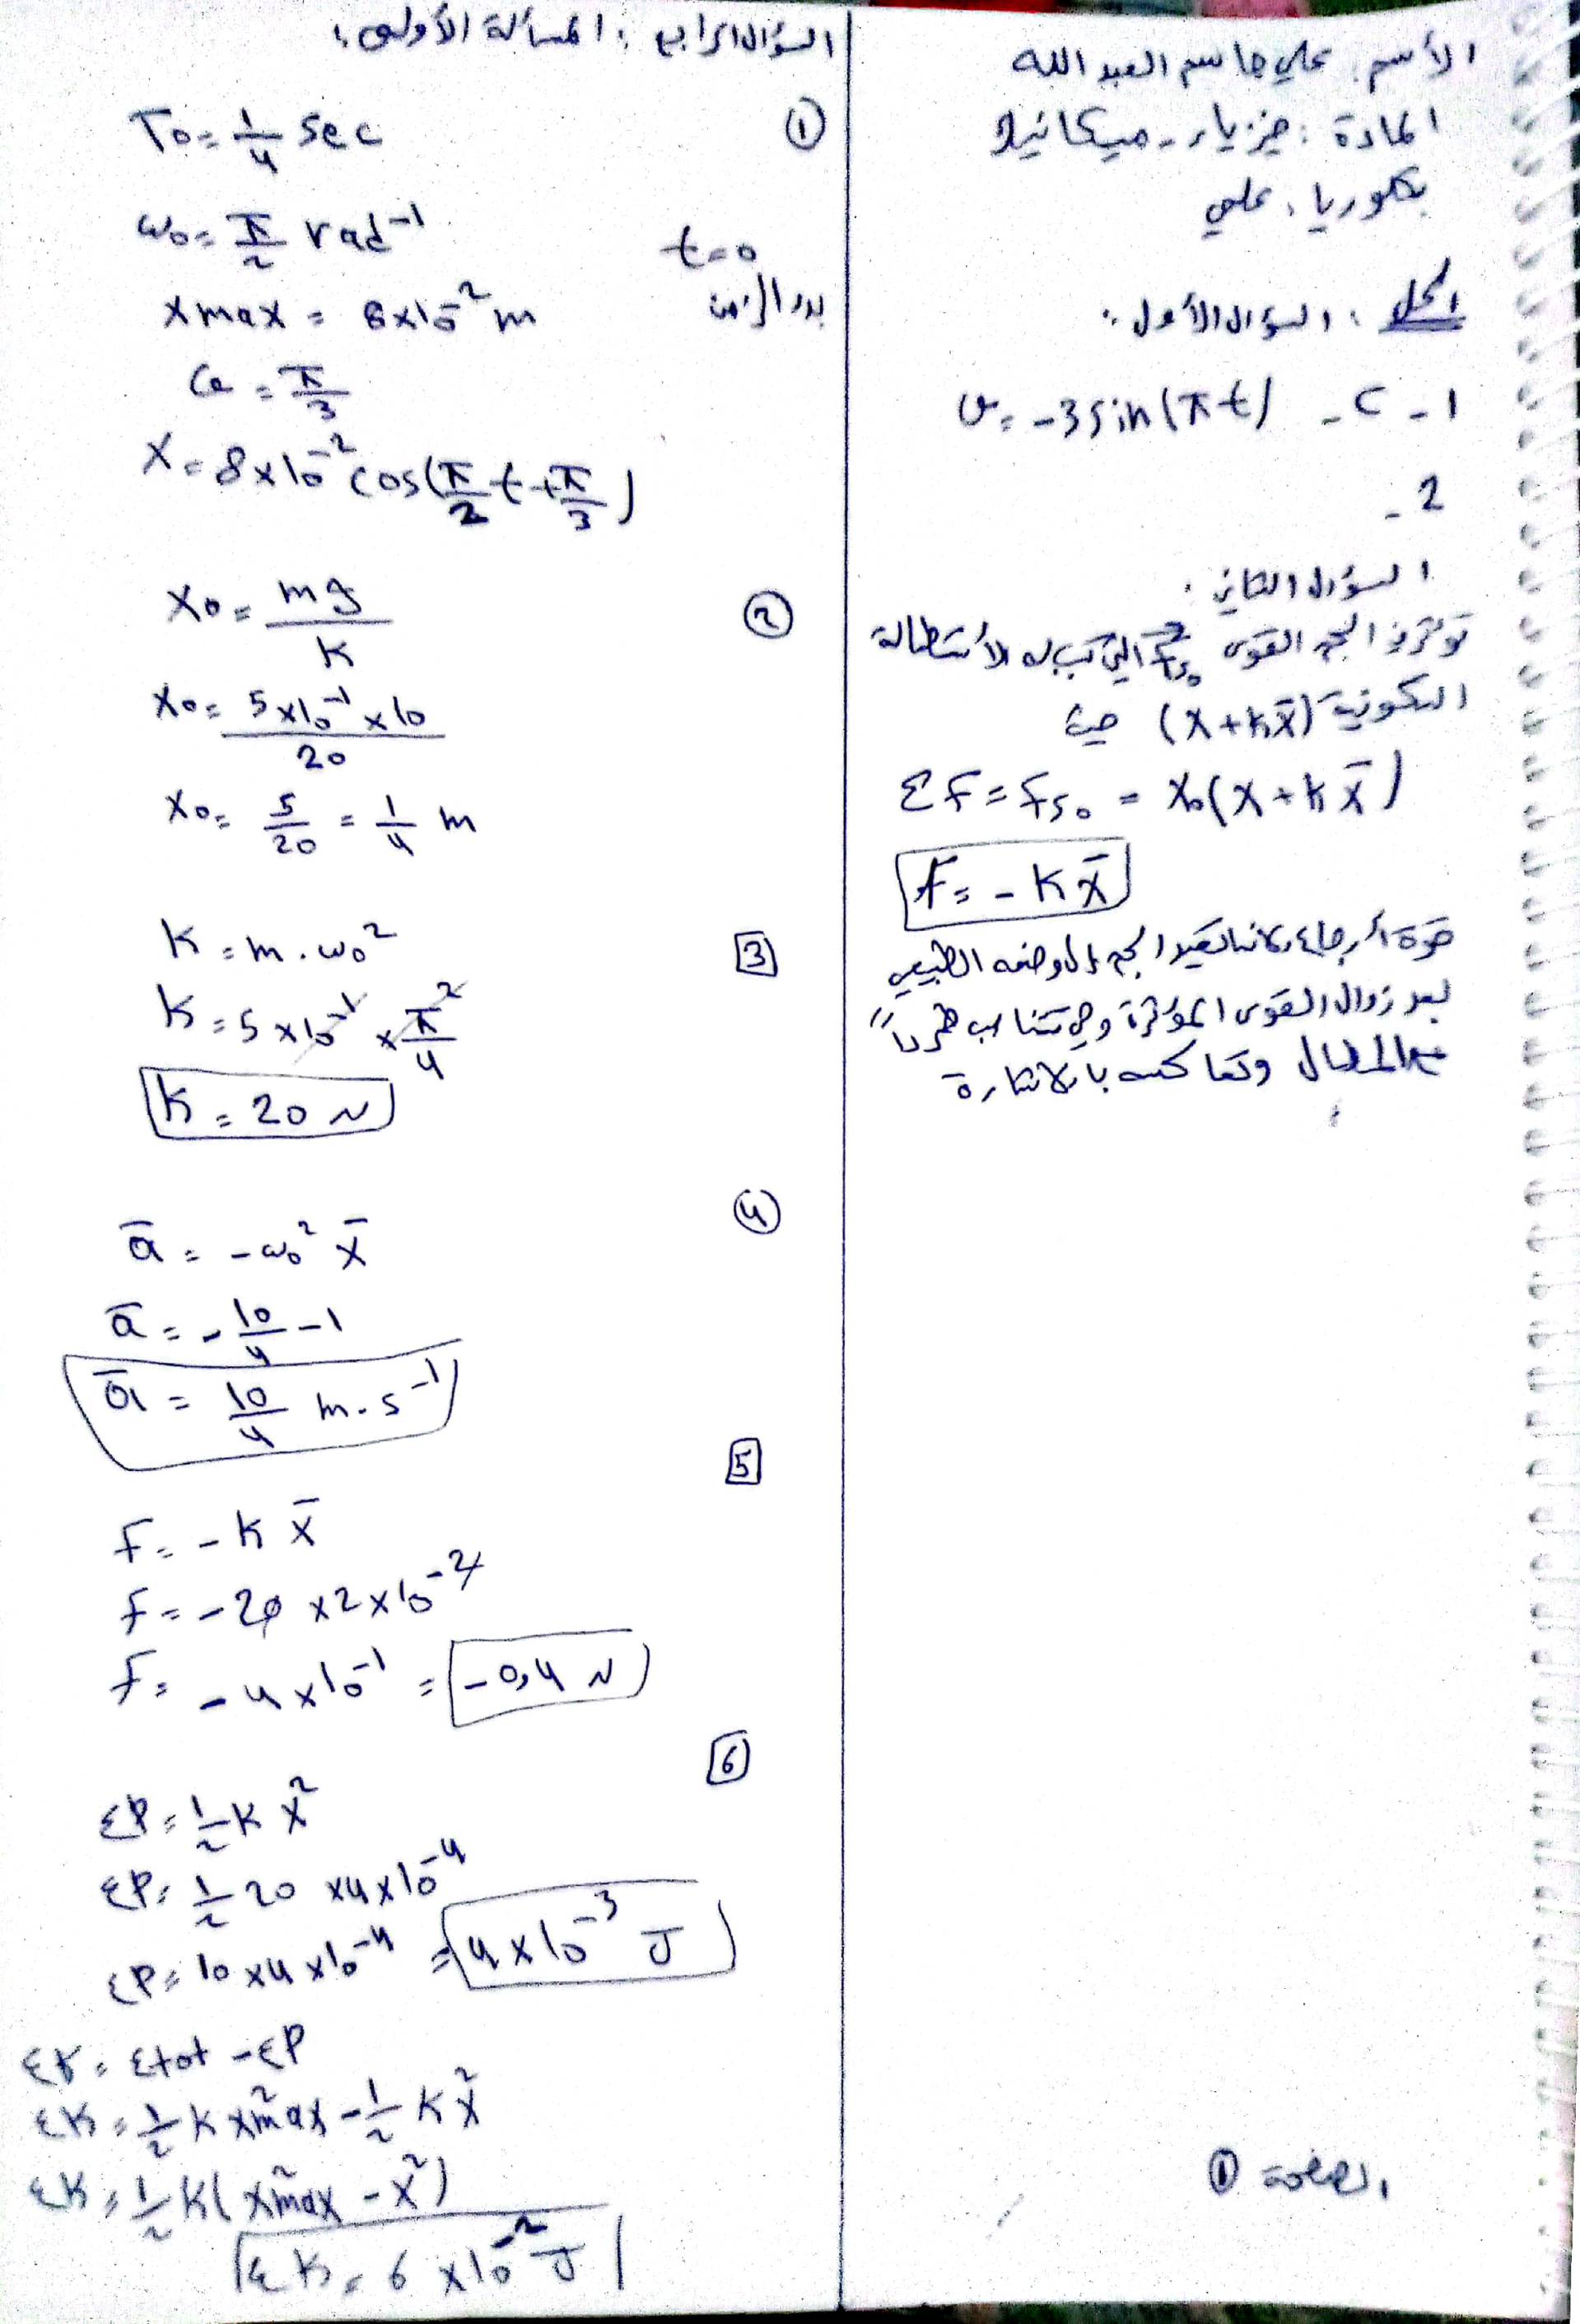 الأسم : علي جاسم العبد الله
المادة : فيزياء - ميكانيك
بكلوريا ، علمي
الحل : السؤال الأول :
1 - c - v = -3 sin(πt)
2 -
السؤال الثاني :
تؤثر في الجسم القوى Fs₀ التي تسبب له الأستطالة
السكونية (X + kx̄) حيث
ΣF = Fs₀ = X₀(X + k x̄)
F = - K x̄
قوة أرجاع لأنها تعيد الجسم إلى وضعه الطبيعي
بعد زوال القوى المؤثرة وهي تتناسب طرداً
مع المطال وتعاكسه بالاشارة
الصفحة ①
السؤال الرابع : المسألة الأولى :
①
T₀ = 1/4 sec
ω₀ = π/2 rad⁻¹
t = 0
بدء الزمن
xmax = 8×10⁻² m
φ = π/3
X = 8×10⁻² cos(π/2 t + π/3)
②
X₀ = mg/K
X₀ = 5×10⁻¹ × 10 / 20
X₀ = 5/20 = 1/4 m
3
K = m . ω₀²
K = 5×10⁻¹ × π²/4
K = 20 N
④
ā = -ω₀² x̄
ā = - 10/4 - 1
ā = 10/4 m.s⁻¹
5
F = - K x̄
F = - 20 × 2 × 10⁻²
F = - 4×10⁻¹ = -0,4 N
6
EP = 1/2 K X²
EP = 1/2 20 × 4×10⁻⁴
EP = 10 × 4 × 10⁻⁴ = 4×10⁻³ J
EK = Etot - EP
EK = 1/2 K x²max - 1/2 K x²
EK = 1/2 K( x²max - x²)
EK = 6 ×10⁻² J